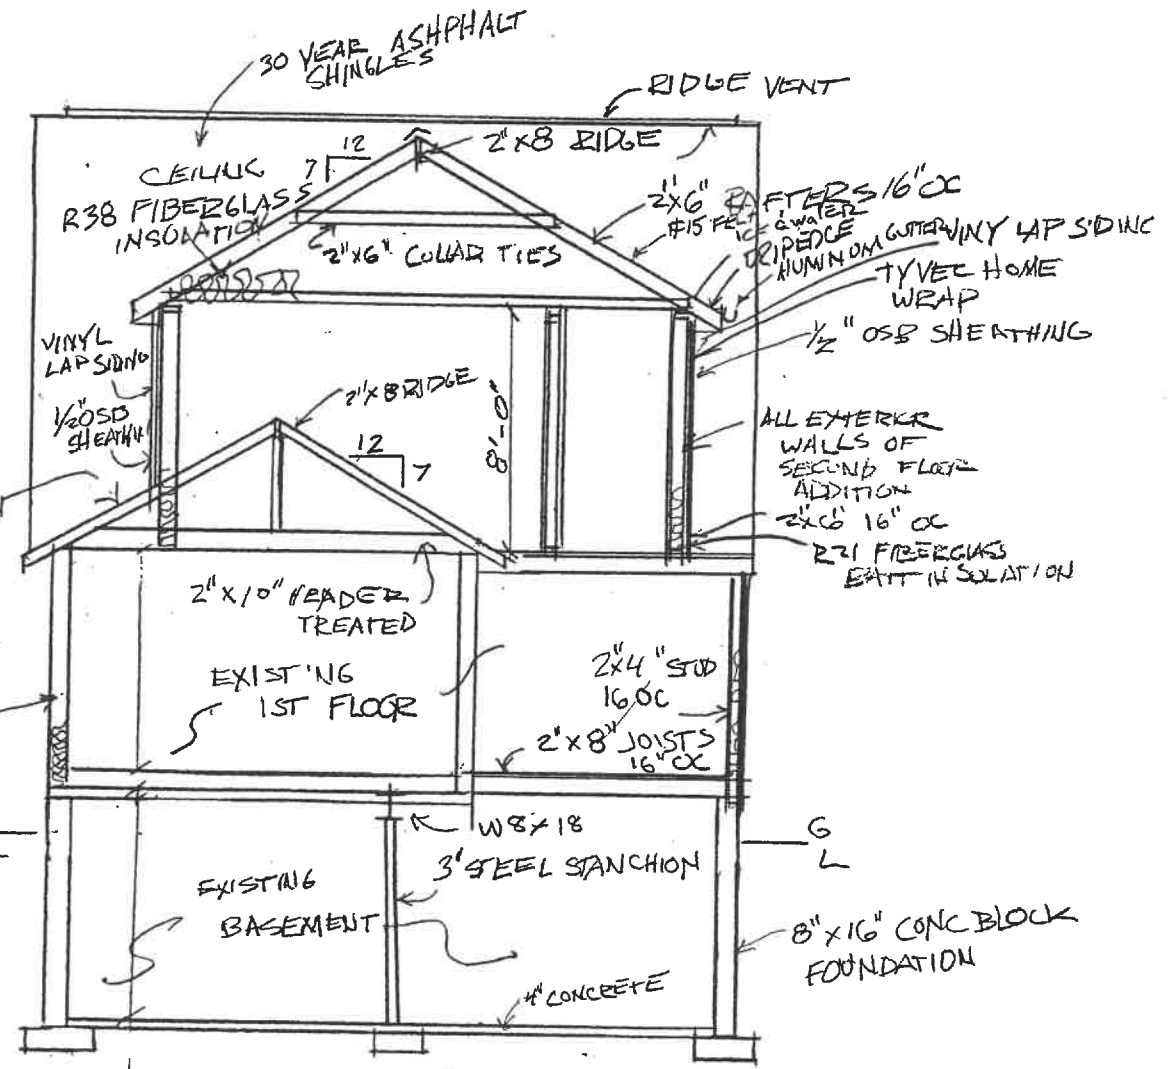 30 YEAR ASHPHALT
SHINGLES
RIDGE VENT
12
7
2"X8 RIDGE
CEILING
R38 FIBERGLASS
INSOLATION
2"X6" RAFTERS 16" OC
#15 FELT
ICE & WATER
DRIPEDGE
ALUMINUM GUTTER
VINY LAP SIDING
2"X6" COLLAR TIES
TYVEC HOME
WRAP
1/2" OSB SHEATHING
VINYL
LAP SIDING
1/2 OSB
SHEATHIN
2"X8 RIDGE
12
7
8'-0"
ALL EXTERIOR
WALLS OF
SECOND FLOOR
ADDITION
2"X6" 16" OC
R21 FIBERGLASS
BATT INSULATION
2"X10" HEADER
TREATED
EXISTING
1ST FLOOR
2"X4" STUD
16 OC
2"X8" JOISTS
16" OC
W8X18
G
L
3" STEEL STANCHION
EXISTING
BASEMENT
8"X16" CONC BLOCK
FOUNDATION
4" CONCRETE